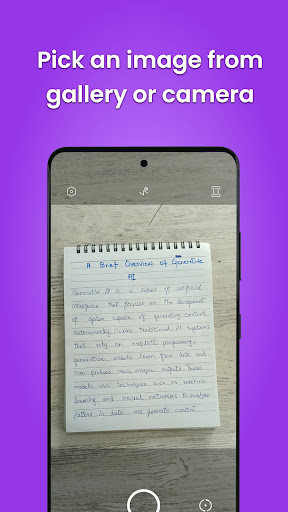 Pick an image from
gallery or camera
A Brief Overview of Generative
AI
Generative AI is a subset of artificial
intelligence that focuses on the development
of system capable of generating content
Autonomously. Unlike traditional AI systems
that rely on explicit programming,
generative models learn from data and
can produce new, unique outputs. These
models use techniques such as machine
learning and neural networks to analyze
pattern in data and generate content.